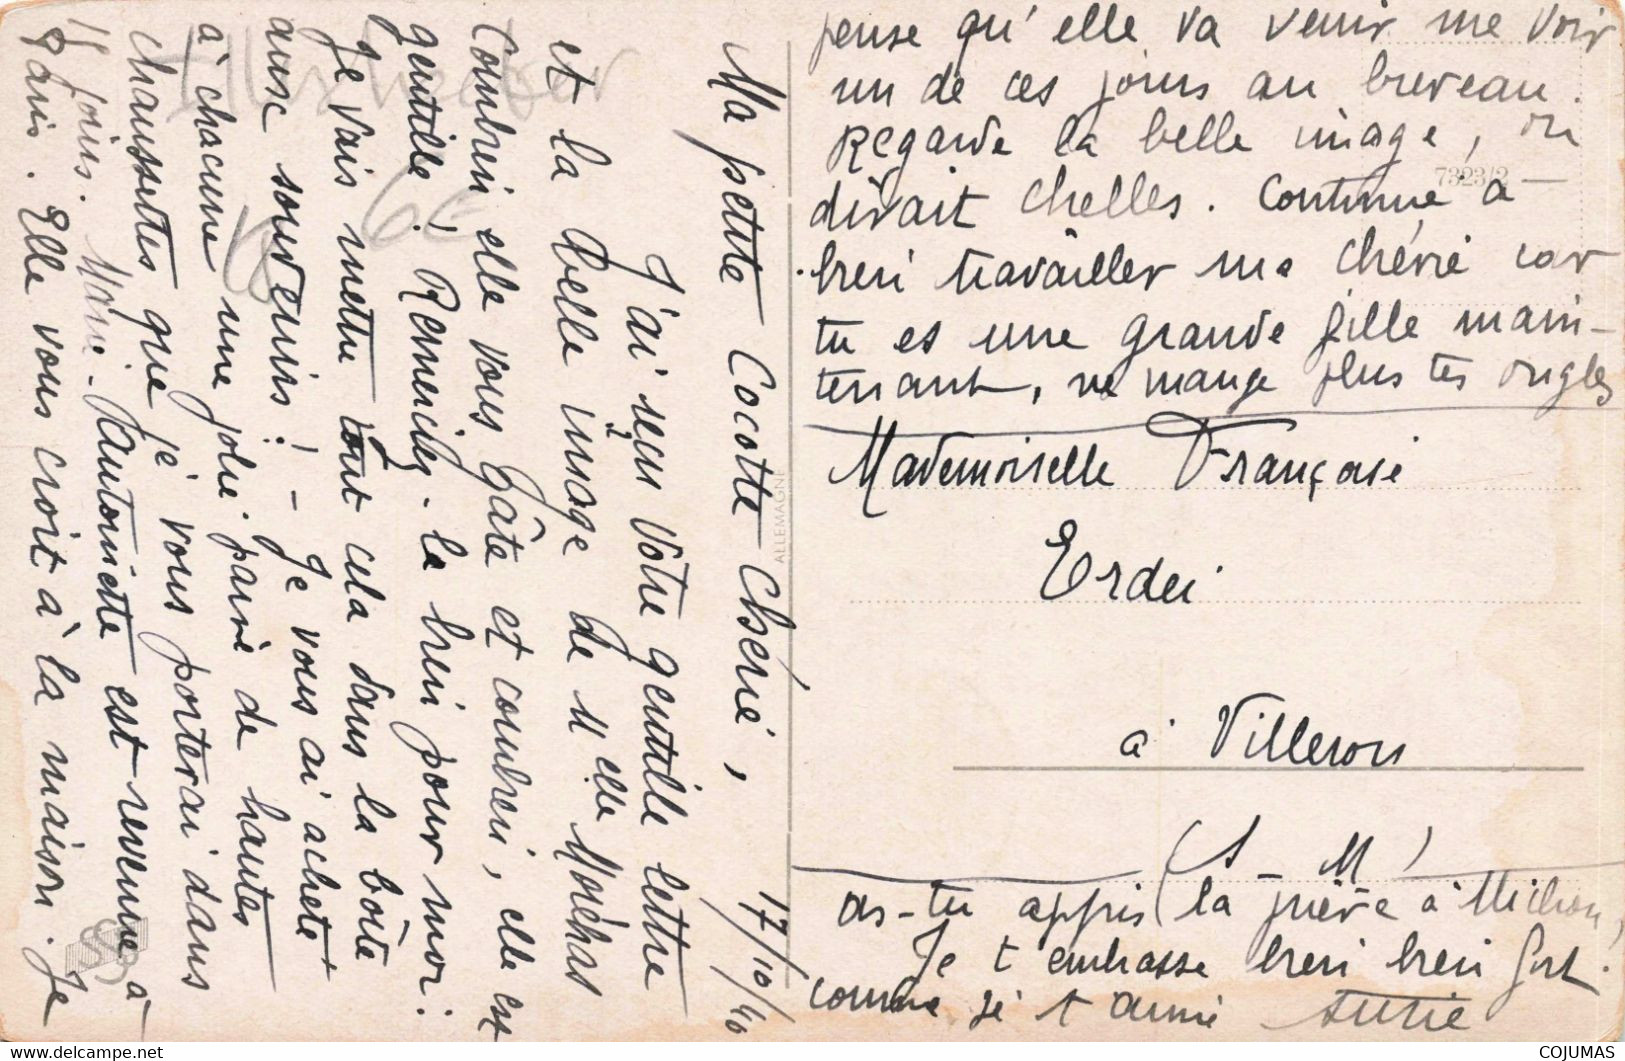 17/10/40
Ma petite Cocotte Chérie,
J'ai reçu votre gentille lettre
et la belle image de Melle Moréhas
Combien elle vous gâte et combien, elle est
gentille! Remerciez-la bien pour moi:
Je vais mettre tout cela dans la boîte
aux souvenirs! - Je vous ai acheté
à chacune une jolie paire de hautes
chaussettes que je vous porterai dans
15 jours. Marie-Antoinette est revenue à
Paris. Elle vous croit à la maison. Je
pense qu'elle va venir me voir
un de ces jours au bureau.
Regarde la belle image, on
dirait Chelles. Continue à
bien travailler ma chérie car
tu es une grande fille main-
tenant, ne mange plus tes ongles
Mademoiselle Françoise
Erdei
à Villeron
(S-M)
as-tu appris la prière à Michou,
Je t'embrasse bien bien fort.
comme je t'aime Suzie
ALLEMAGNE
7323/2
COJUMAS